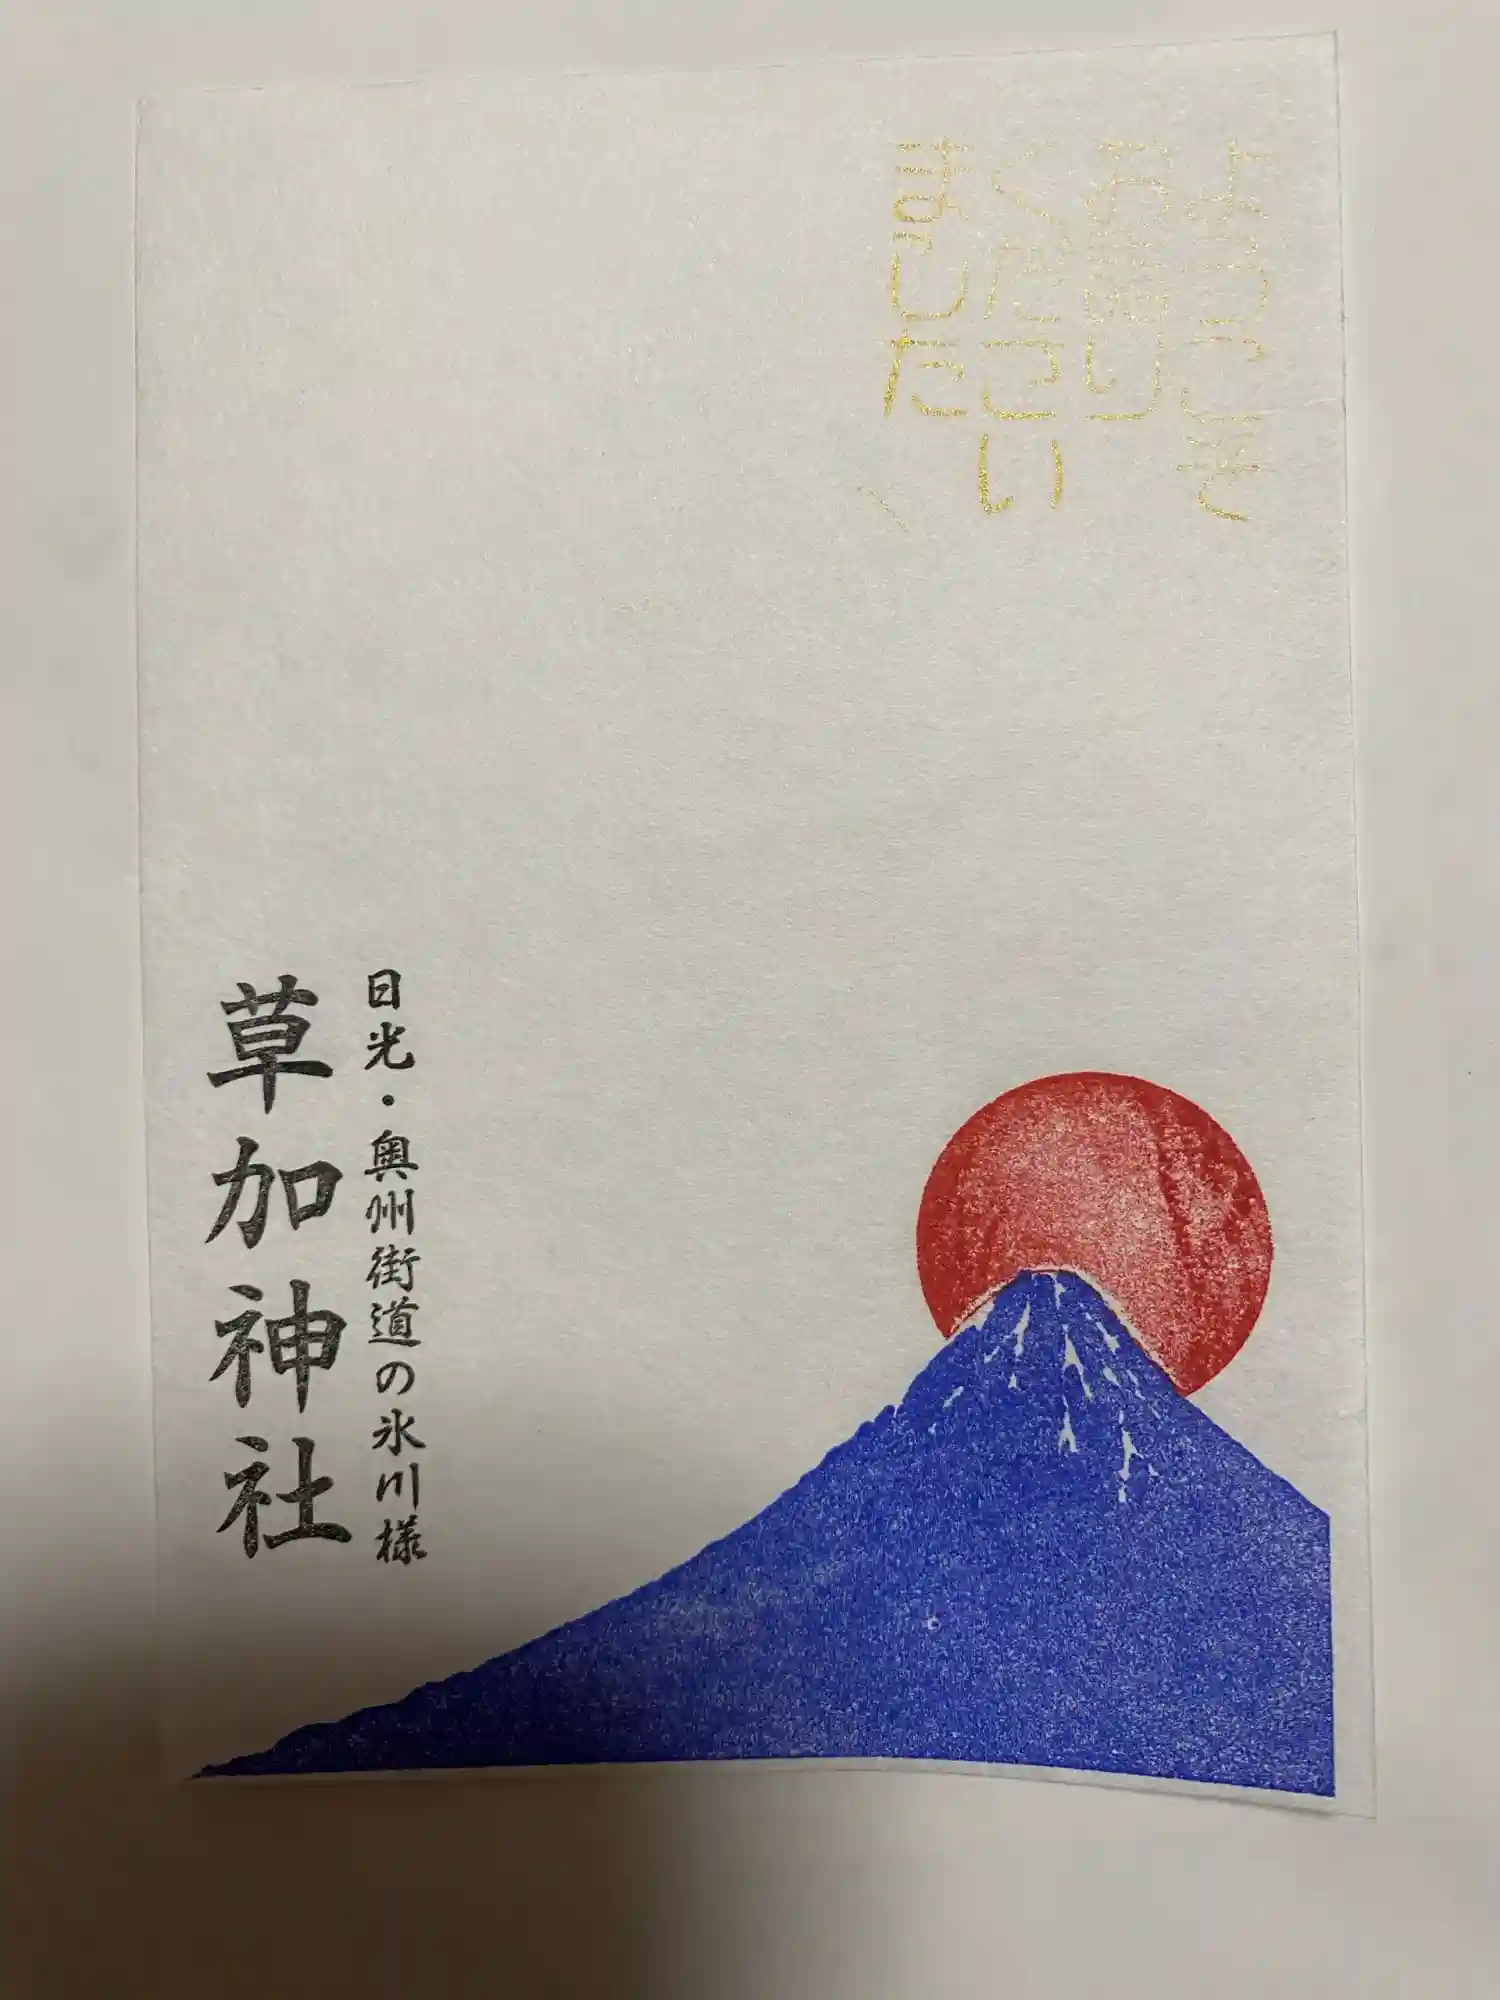 ようこそ
お詣り
ください
ました
日光・奥州街道の氷川様
草加神社